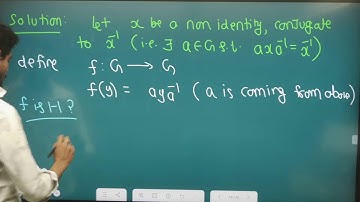 Solution: let x be a non identity, conjugate
to x⁻¹ (i.e. ∃ a ∈ G s.t. a x a⁻¹ = x⁻¹)
define f: G → G
f(y) = a y a⁻¹ (a is coming from above)
f is 1-1?